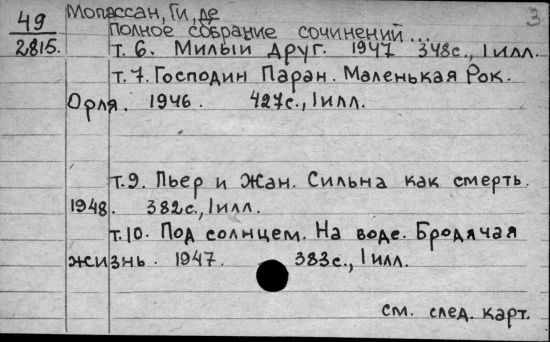 49
2815.
Мопассан, Ги, де
3
Полное собрание сочинений...
т. 6. Милый друг. 1947 348с., 1 илл.
т. 7. Господин Паран. Маленькая Рок.
Орля. 1946. 427с., 1 илл.
т. 9. Пьер и Жан. Сильна как смерть.
1948. 382с., 1 илл.
т. 10. Под солнцем. На воде. Бродячая
жизнь. 1947. 383с., 1 илл.
см. след. карт.